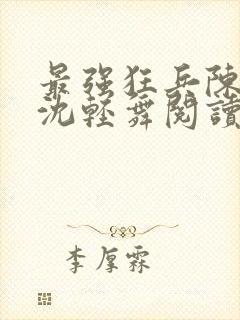 最强狂兵陳
沈輕舞閱讀
李厚霖